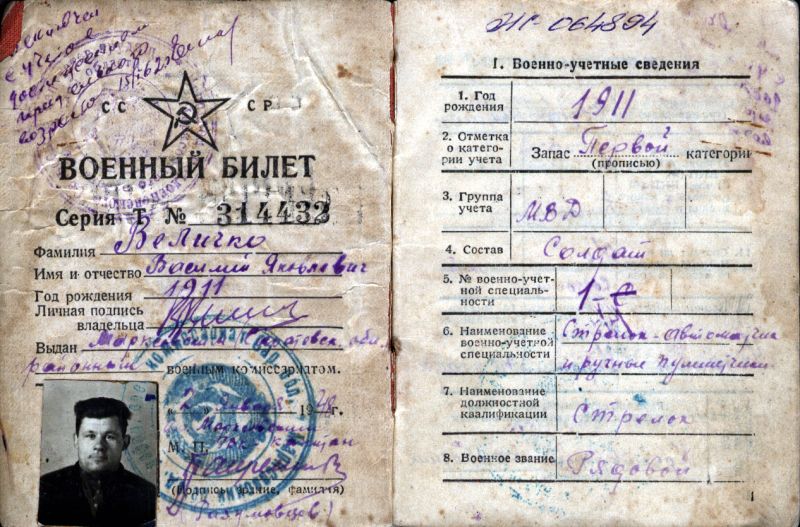 исключен
с учета
достижением
возраста
СС СР
ВОЕННЫЙ БИЛЕТ
Серия Т № 314432
Фамилия Величко
Имя и отчество Василий Яковлевич
Год рождения 1911
Личная подпись
владельца
Выдан
районным военным комиссариатом.
«2» января 19 г.
М. П.
капитан
(Подпись, звание, фамилия)
064894
I. Военно-учетные сведения
1. Год
рождения 1911
2. Отметка
о катего-
рии учета Запас Первой категории
(прописью)
3. Группа
учета МВД
4. Состав Солдат
5. № военно-учет-
ной специаль-
ности 1-
6. Наименование
военно-учетной
специальности Стрелок-автоматчик
и ручные пулеметчики
7. Наименование
должностной
квалификации Стрелок
8. Военное звание Рядовой
1